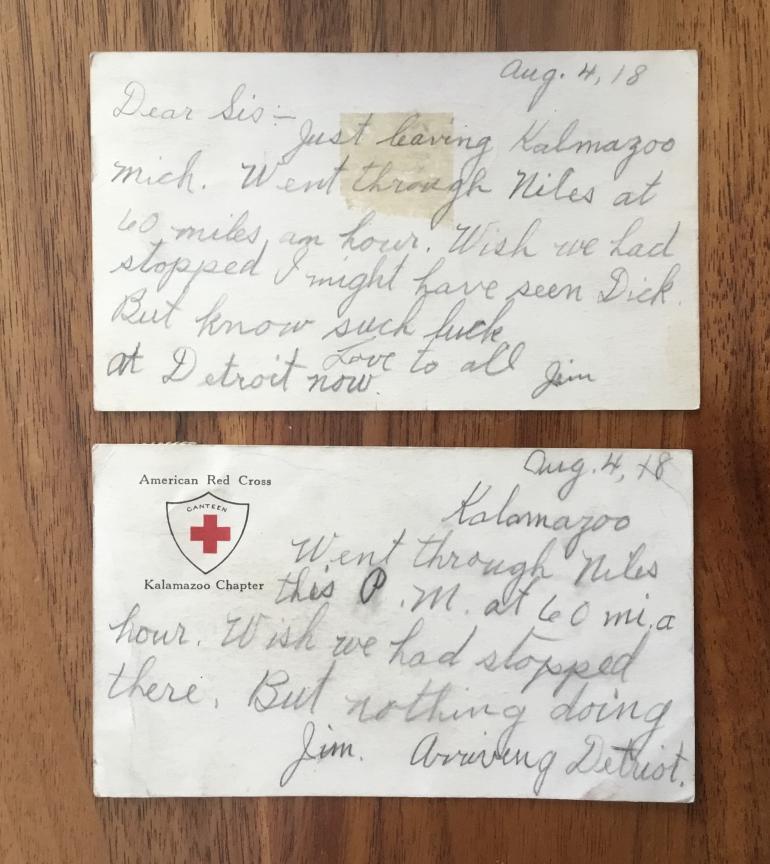 Aug. 4, 18
Dear Sis:—
Just leaving Kalmazoo
Mich. Went through Niles at
60 miles an hour. Wish we had
stopped I might have seen Dick.
But know such luck
Love to all Jim
at Detroit now.
Aug. 4, 18
American Red Cross
CANTEEN
Kalamazoo Chapter
Kalamazoo
Went through Niles
this P.M. at 60 mi. a
hour. Wish we had stopped
there. But nothing doing
Jim. Arriving Detriot.